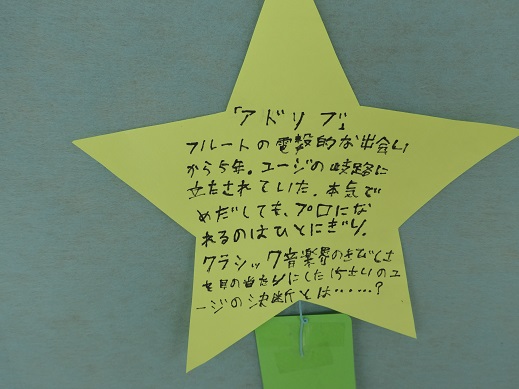 「アドリブ」
フルートの電撃的な出会い
から5年。ユージの岐路に
立たされていた。本気で
めだしても、プロにな
れるのはひとにぎり。
クラシック音楽界のきびしさ
を目の当たりにした15才のユ
ージの決断とは……?